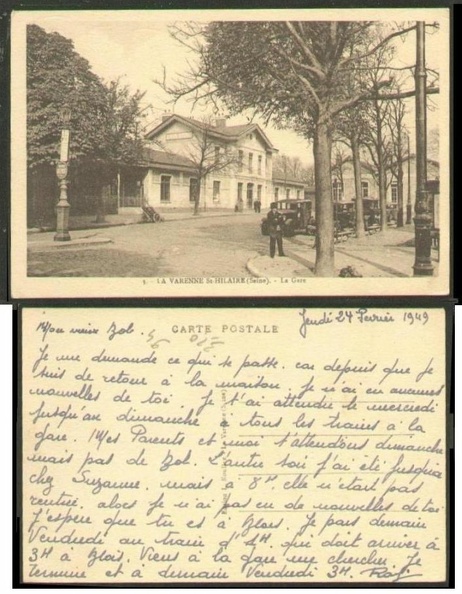 5. - LA VARENNE St-HILAIRE (Seine). - La Gare
CARTE POSTALE
Jeudi 24 Fevrier 1949
Mon vieux Bob.
Je me demande ce qui se passe. car depuis que je
suis de retour à la maison je n'ai eu aucunes
nouvelles de toi. Je t'ai attendu le mercredi
jusqu'au dimanche à tous les trains à la
gare. Mes Parents et moi t'attendons dimanche
mais pas de Bob. L'autre soir j'ai été jusque
chez Suzanne. mais à 8H. elle n'était pas
rentrée, alors je n'ai pas eu de nouvelles de toi
J'espère que tu es à Blois. Je pars demain
Vendredi au train d' qui doit arriver à
3H à Blois. Viens à la gare me chercher. Je
termine et à demain Vendredi 3H.